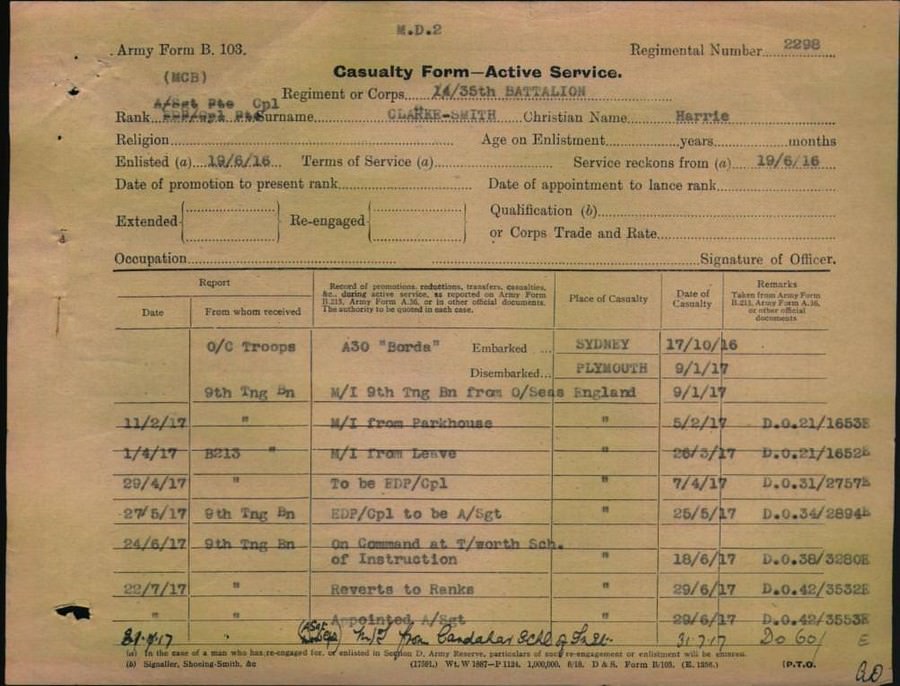 M.D.2
Army Form B. 103.
Regimental Number 2298
(MCB)
Casualty Form—Active Service.
Regiment or Corps 14/35th BATTALION
A/Sgt Pte Cpl
Rank EDP/Cpl Pte Surname CLARKE-SMITH Christian Name Harrie
Religion Age on Enlistment years months
Enlisted (a) 19/6/16 Terms of Service (a) Service reckons from (a) 19/6/16
Date of promotion to present rank Date of appointment to lance rank
Extended Re-engaged Qualification (b)
or Corps Trade and Rate
Occupation Signature of Officer.
Report
Date
From whom received
Record of promotions, reductions, transfers, casualties,
&c., during active service, as reported on Army Form
B.213, Army Form A.36, or in other official documents.
The authority to be quoted in each case.
Place of Casualty
Date of
Casualty
Remarks
Taken from Army Form
B.213, Army Form A.36,
or other official
documents
O/C Troops A30 "Borda" Embarked ... SYDNEY 17/10/16
Disembarked... PLYMOUTH 9/1/17
9th Tng Bn M/I 9th Tng Bn from O/Seas England 9/1/17
11/2/17 " M/I from Parkhouse " 5/2/17 D.O.21/1653E
1/4/17 B213 " M/I from Leave " 26/3/17 D.O.21/1652E
29/4/17 " To be EDP/Cpl " 7/4/17 D.O.31/2757E
27/5/17 9th Tng Bn EDP/Cpl to be A/Sgt " 25/5/17 D.O.34/2894E
24/6/17 9th Tng Bn On Command at T/worth Sch.
of Instruction " 18/6/17 D.O.38/3280E
22/7/17 " Reverts to Ranks " 29/6/17 D.O.42/3532E
" " Appointed A/Sgt " 29/6/17 D.O.42/3553E
(A/Sgt M/I from Candahar Schl of 31.7.17 Do 60/ E
(a) In the case of a man who has re-engaged for, or enlisted in Section D. Army Reserve, particulars of such re-engagement or enlistment will be entered.
(b) Signaller, Shoeing-Smith, &c (17591.) Wt. W 1887—P 1124. 1,000,000. 6/18. D & S. Form B/103. (E. 1256.) (P.T.O.